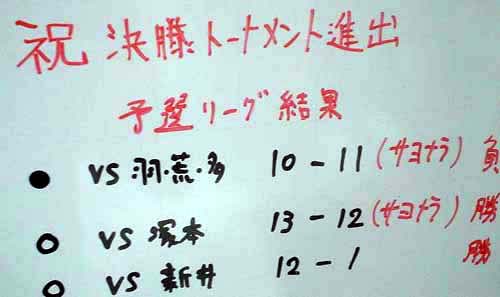 祝 決勝トーナメント進出
予選リーグ結果
● VS 羽・荒・多 10-11 (サヨナラ) 負
○ VS 塚本 13-12 (サヨナラ) 勝
○ VS 新井 12-1 勝